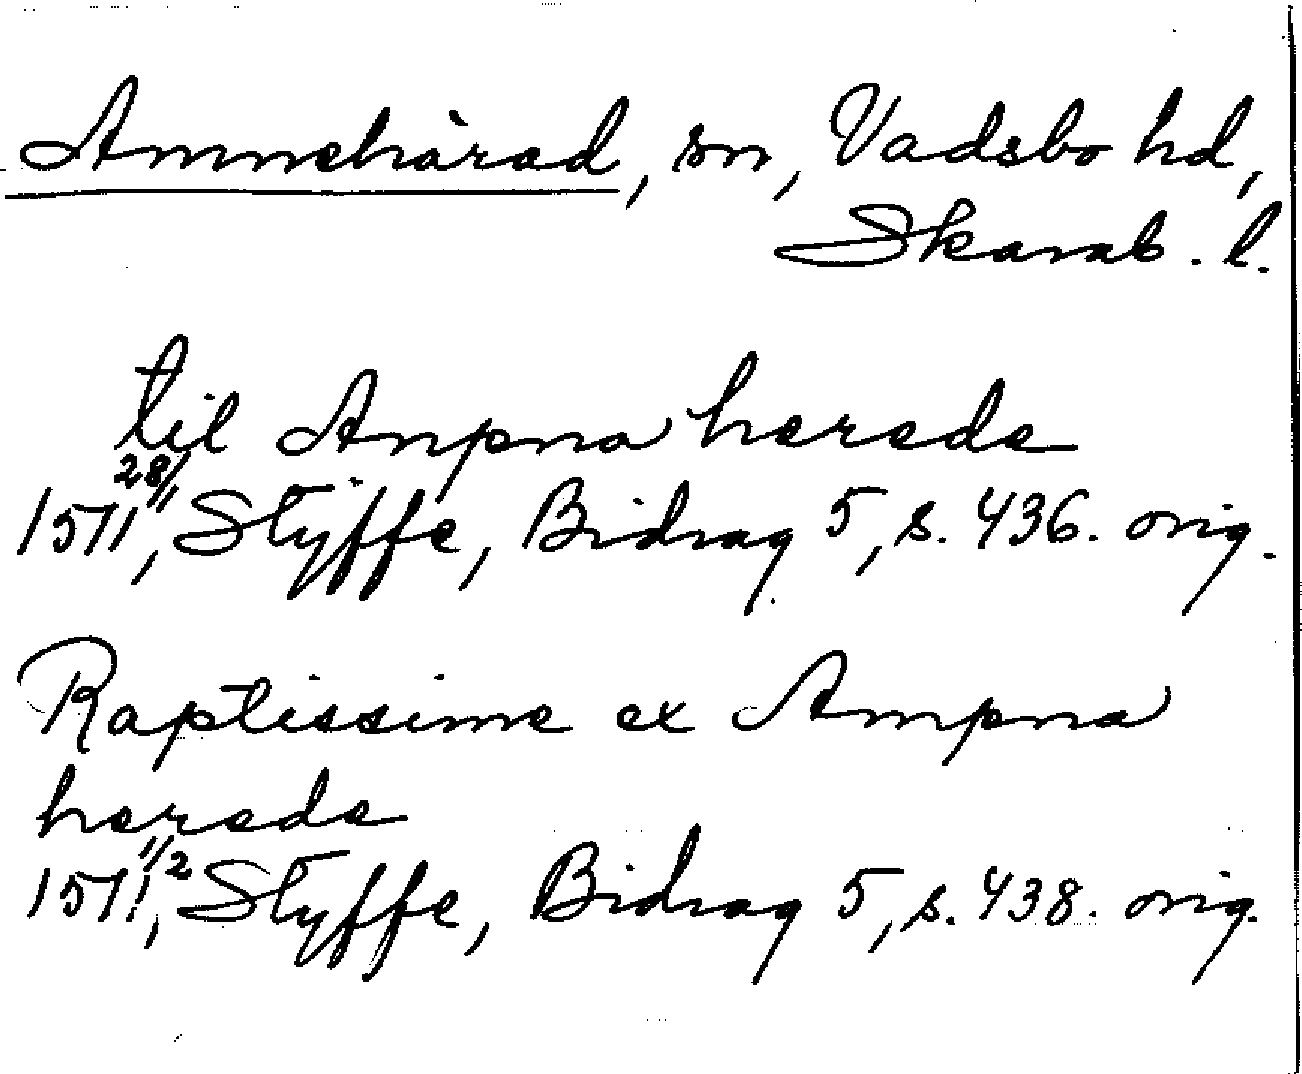 Amnehärad, sn, Vadsbo hd,
Skarab. l.
til Anpna herede
1511 28/11, Styffe, Bidrag 5, s. 436. orig.
Raptissime ex Ampna
herede
1511 1/12, Styffe, Bidrag 5, s. 438. orig.